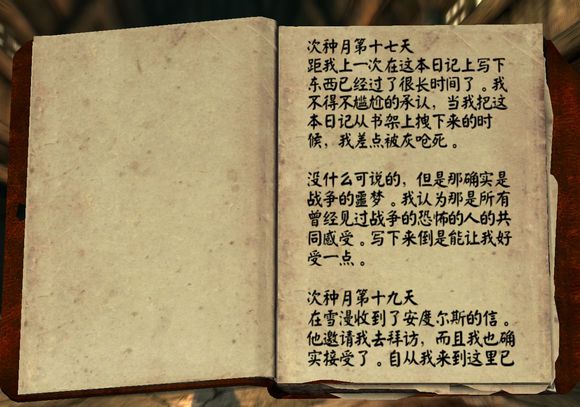 次种月第十七天
距我上一次在这本日记上写下
东西已经过了很长时间了。我
不得不尴尬的承认，当我把这
本日记从书架上拽下来的时
候，我差点被灰呛死。
没什么可说的，但是那确实是
战争的噩梦。我认为那是所有
曾经见过战争的恐怖的人的共
同感受。写下来倒是能让我好
受一点。
次种月第十九天
在雪漫收到了安度尔斯的信。
他邀请我去拜访，而且我也确
实接受了。自从我来到这里已